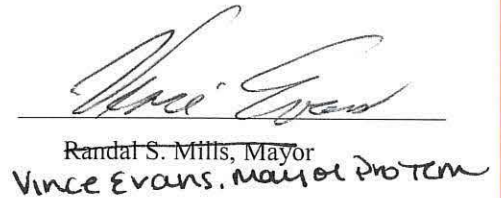 Vince Evans
Randal S. Mills, Mayor
Vince Evans, Mayor Pro Tem